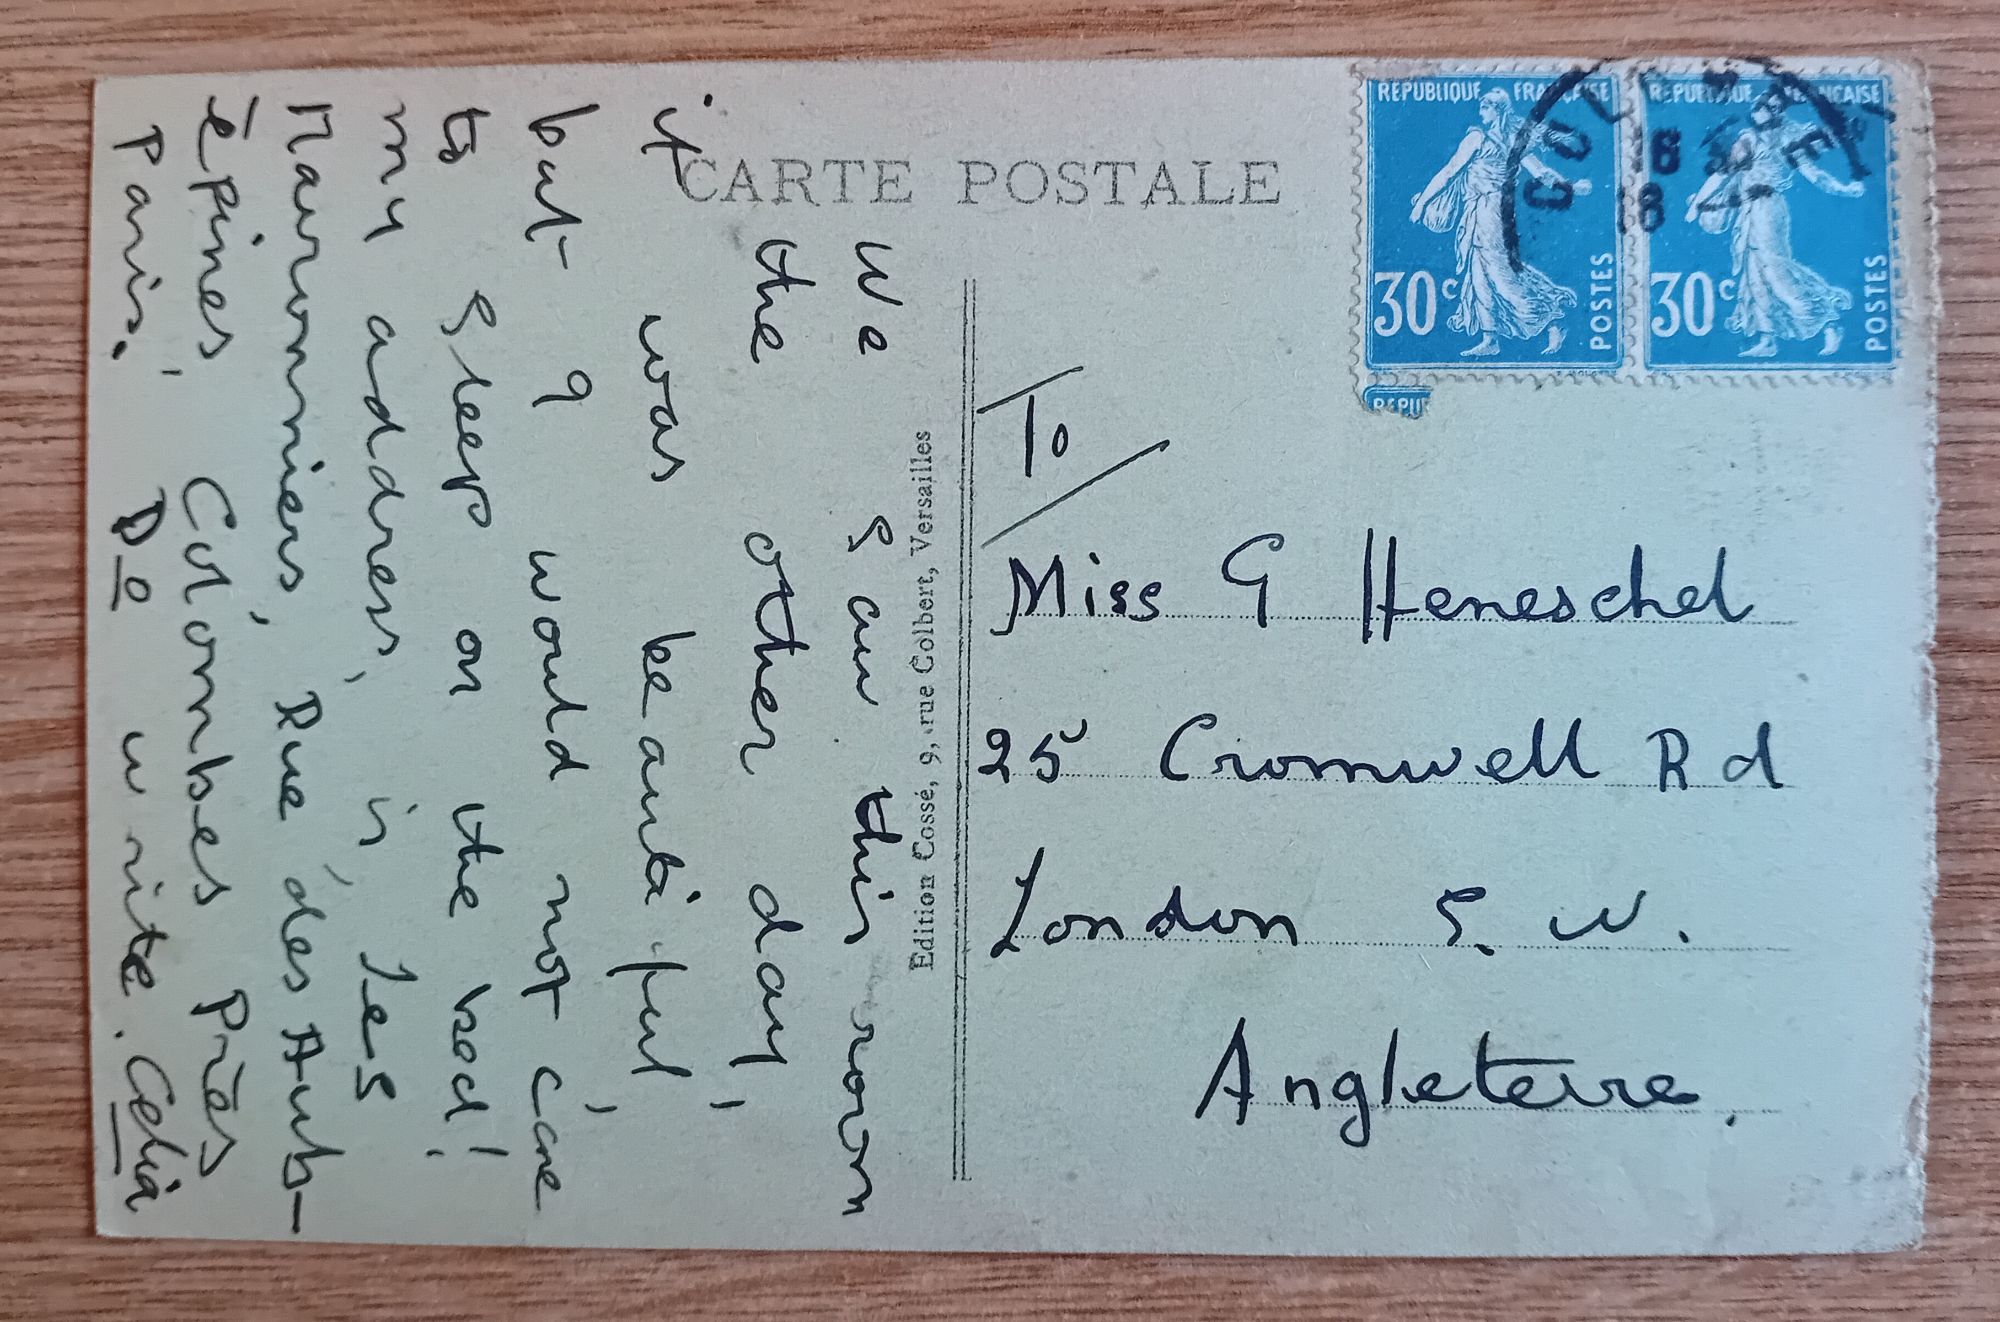 CARTE POSTALE
We saw this room
the other day,
it was beautiful,
but I would not care
to sleep on the bed!
my address, is, Les
Marronniers, Rue, des Aub-
épines, Colombes Près
Paris. Do write. Celia
Edition Cossé, 9, rue Colbert, Versailles
REPUBLIQUE FRANÇAISE
30c
POSTES
REPUBLIQUE FRANÇAISE
30c
POSTES
REPU
18
To
Miss G Heneschel
25 Cromwell Rd
London S. W.
Angleterre.